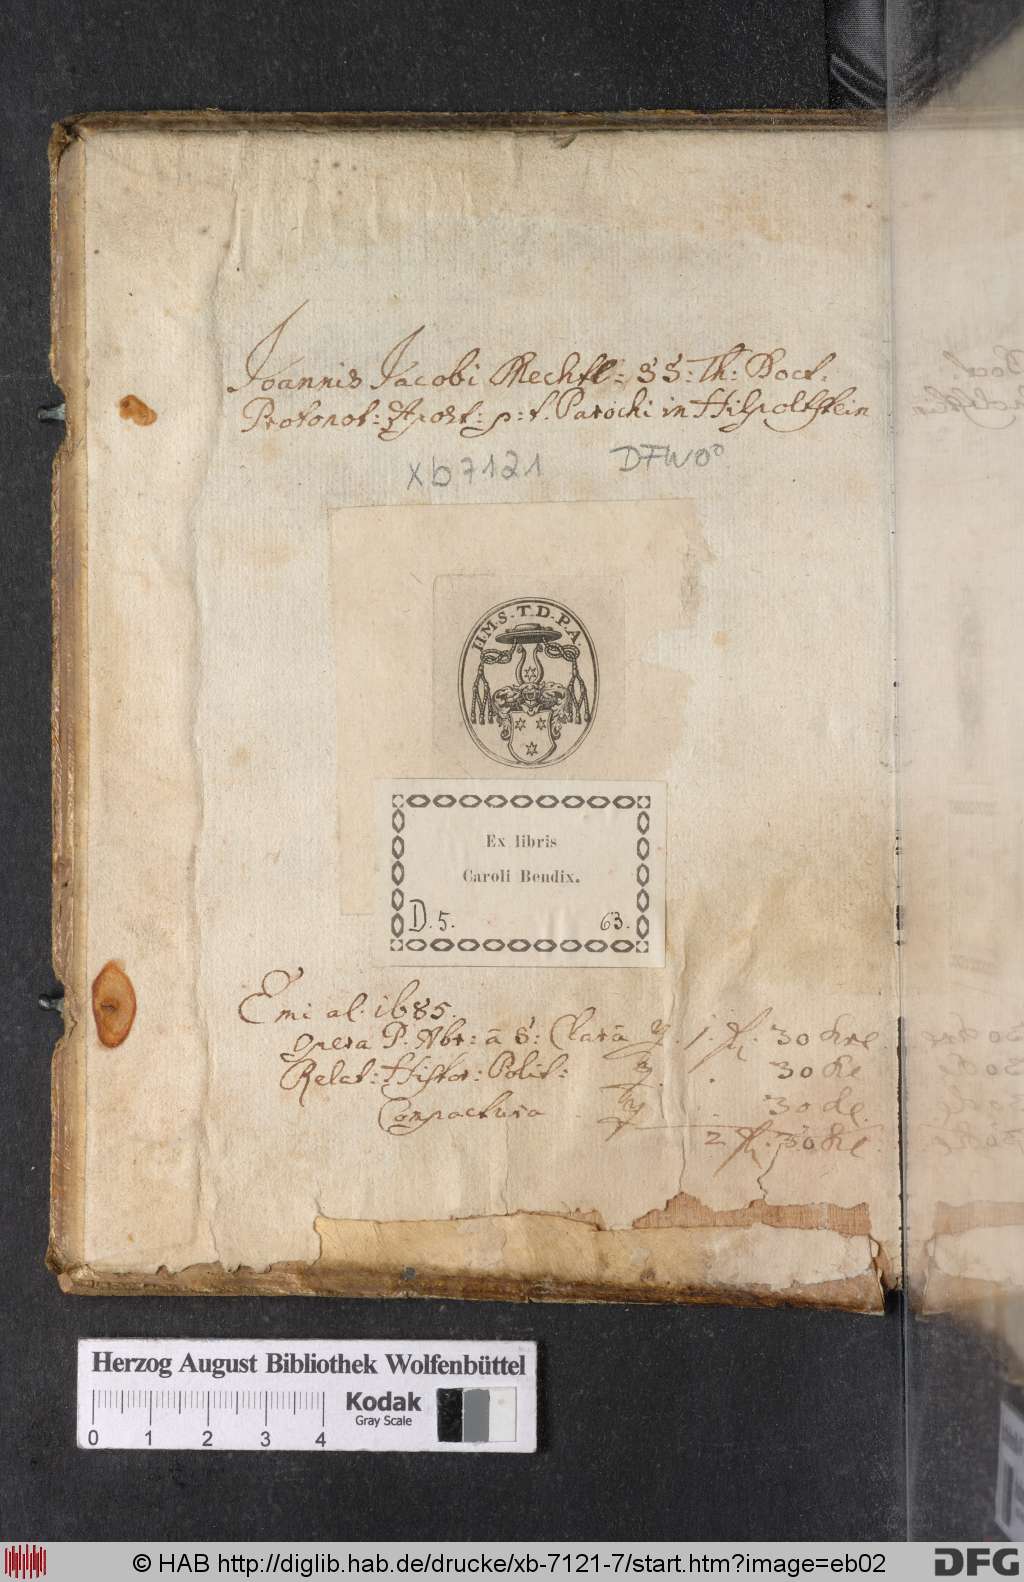 Ioannis Jacobi Mechtl: SS: Th: Doct:
Protonot: Apost: p: t. Parochi in Hilpoltstein
Xb7121 DFW0°
I.I.M.S.T.D.P.A.
Ex libris
Caroli Bendix.
D. 5. 63.
Emi aº. 1685.
opera P. Abr: à S: Clarâ 1. fl. 30 kre
Relat: Histor: Polit: 30 kre
Compactura 30 kre
2 fl: 30 kre
Herzog August Bibliothek Wolfenbüttel
Kodak
Gray Scale
0 1 2 3 4
© HAB http://diglib.hab.de/drucke/xb-7121-7/start.htm?image=eb02
DFG